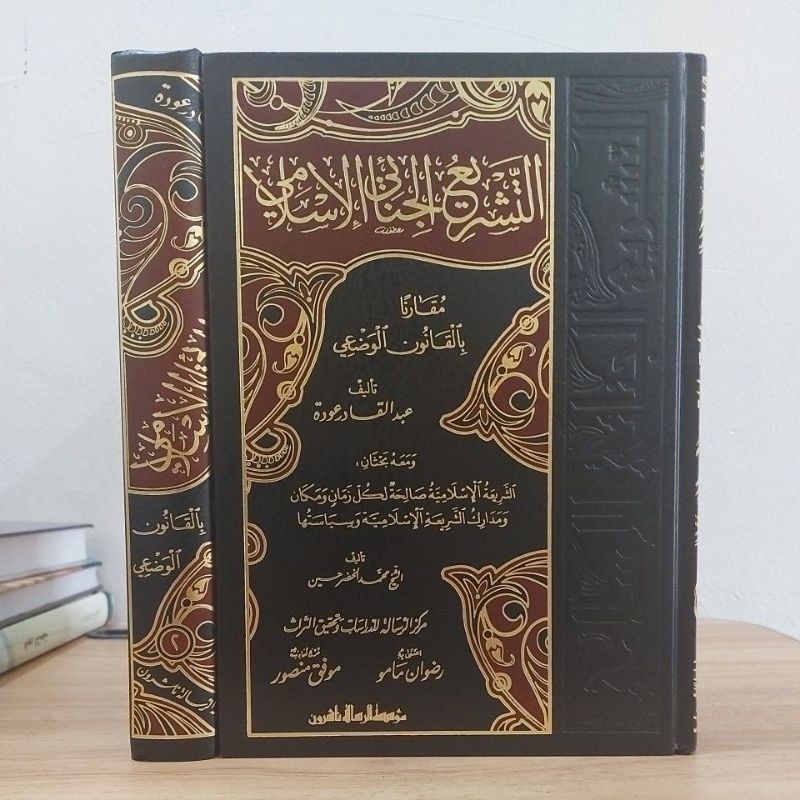 التَّشْرِيعُ الجِنَائِيُّ الإِسْلَامِيُّ
مُقَارَنًا
بِالْقَانُونِ الْوَضْعِيِّ
تأليف
عبد القادر عودة
وَمَعَهُ بَحْثَانِ:
الشَّرِيعَةُ الْإِسْلَامِيَّةُ صَالِحَةٌ لِكُلِّ زَمَانٍ وَمَكَانٍ
وَمَدَارِكُ الشَّرِيعَةِ الْإِسْلَامِيَّةِ وَسِيَاسَتُهَا
تأليف
الشيخ محمد الخضر حسين
مركز الرسالة للدراسات وتحقيق التراث
اعتنى به
رضوان مامو
موفق منصور
مؤسسة الرسالة ناشرون
در عودة
الإسلامي
بِالْقَانُونِ
الْوَضْعِيِّ
٢
الرسالة ناشرون